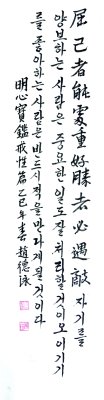 屈己者能處重好勝者必遇敵 자기를
양보하는 사람은 중요한 일도 잘 처리할 것이오 이기기
를 좋아하는 사람은 반드시 적을 만나게 될 것이다
明心寶鑑 戒性篇 乙巳年春 趙德